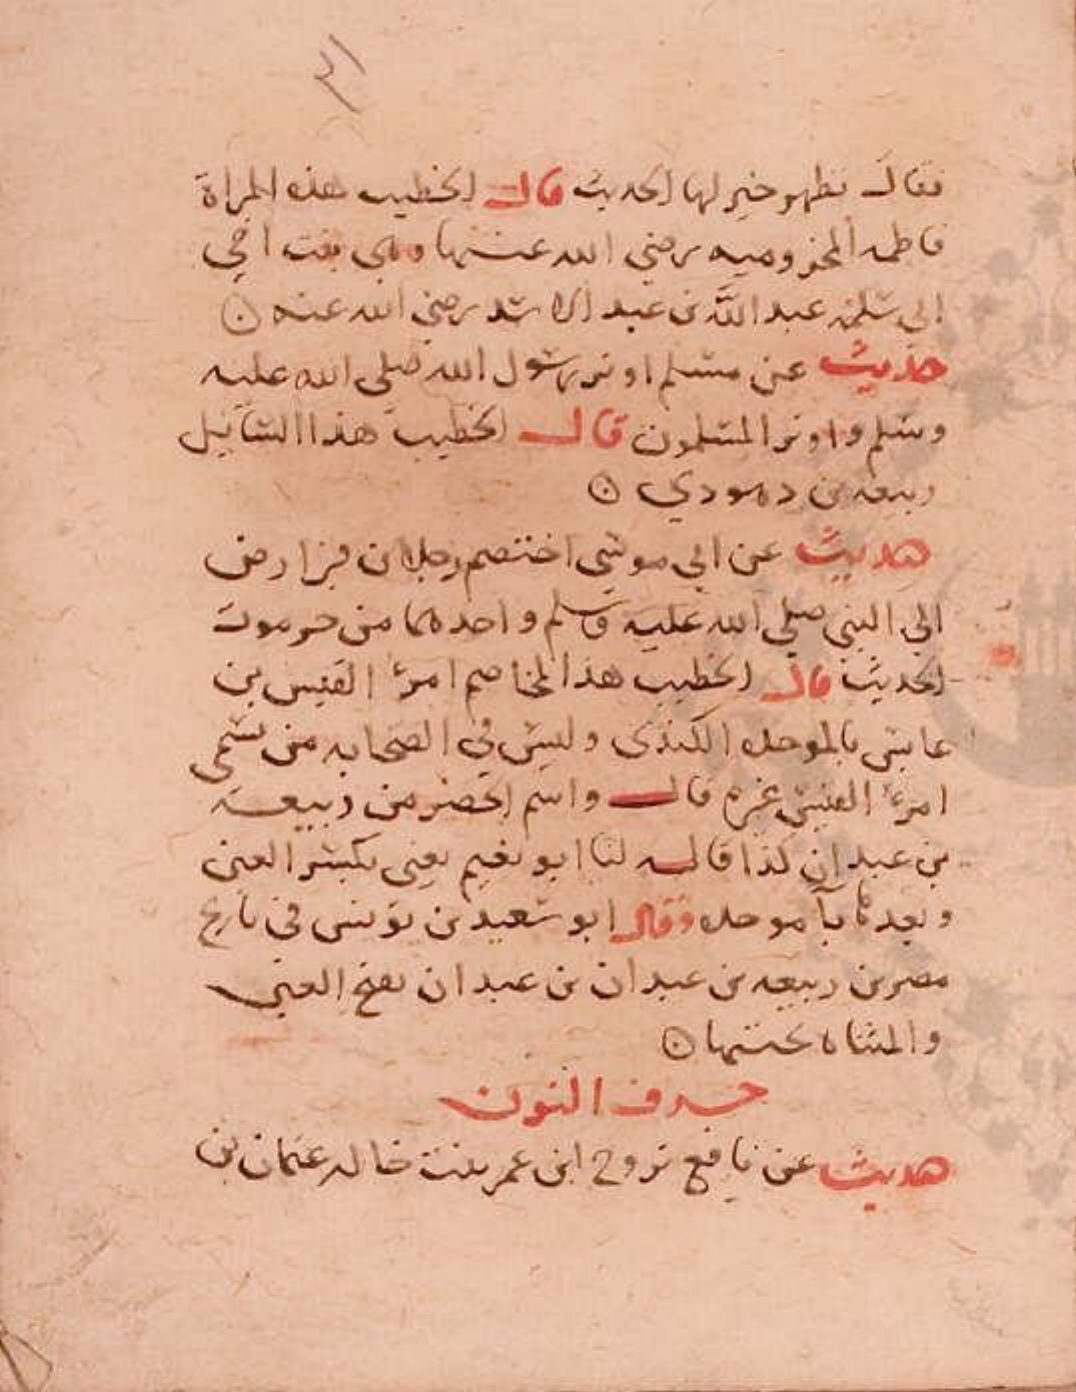 ٣١
فقال تطهر خير لها الحديث قال الخطيب هذه المراة
فاطمه المخزوميه رضي الله عنها وهي بنت اخي
ابي سلمه عبد الله بن عبد الاسد رضي الله عنه
حديث عن مسلم اوتر رسول الله صلي الله عليه
وسلم واوتر المسلمون قال الخطيب هذا السايل
ربيعه بن دهودي
حديث عن ابي موسي اختصم رجلان في ارض
الي النبي صلي الله عليه وسلم واحدهما من حرموت
الحديث قال الخطيب هذا المخاصم امرء القيس بن
عابس بالموحده الكندي وليس في الصحابه من تسمى
امرء القيس غيره قال واسم الخضر من ربيعة
بن عبدان كذا قال لنا ابو نعيم يعني بكسر العين
وبعدها بآ موحده وقال ابو سعيد بن يونس في تاريخ
مصر بن ربيعه بن عبدان بن عبدان بفتح العين
والمثناه تحتها
حرف النون
حديث عن نافع تزوج ابن عمر بنت خاله عثمان بن